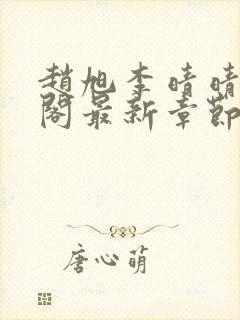 趙旭李晴晴
閣最新章節
唐心萌